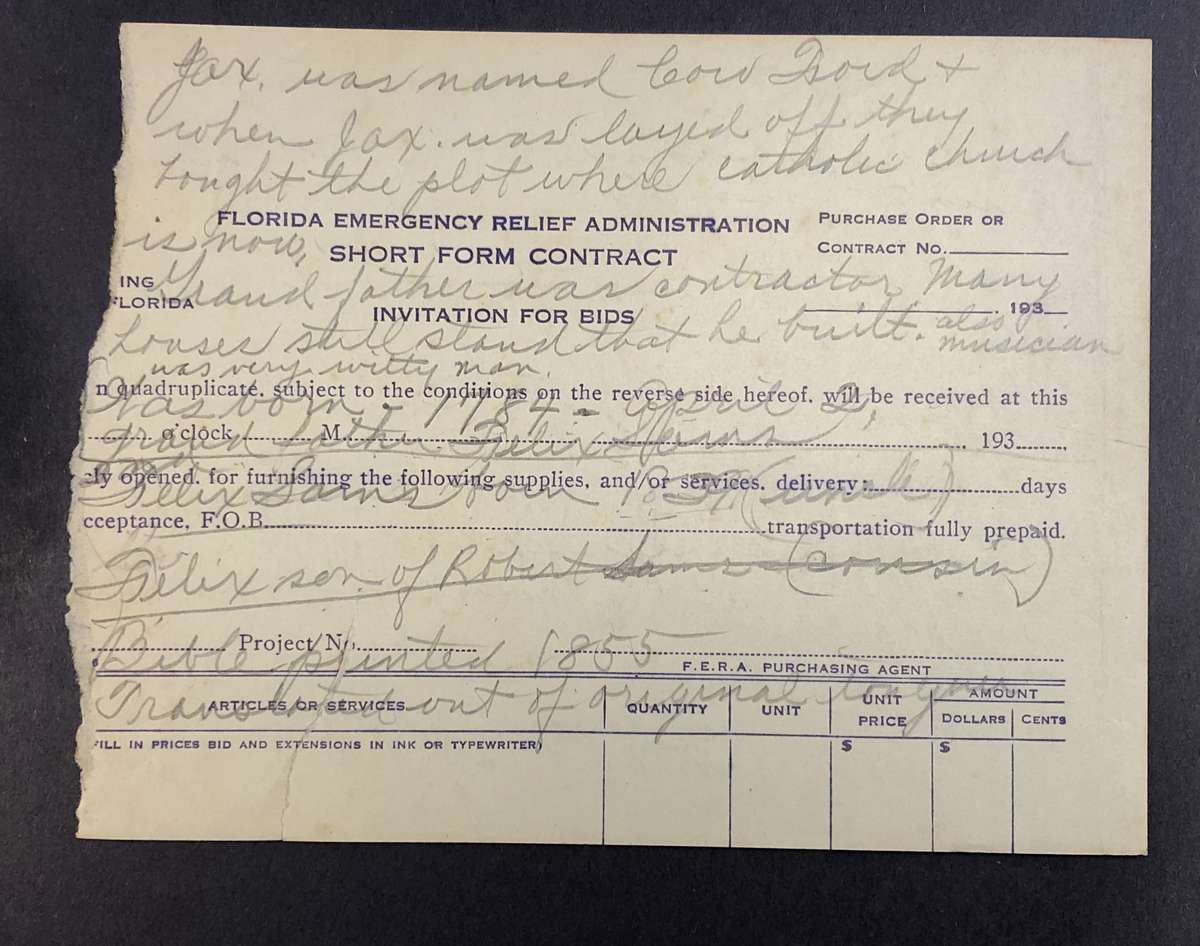 Jax. was named Cow Ford +
when Jax. was layed off they
bought the plot where catholic church
FLORIDA EMERGENCY RELIEF ADMINISTRATION
PURCHASE ORDER OR
is now.
SHORT FORM CONTRACT
CONTRACT NO.
ING
Grand father was contractor Many
FLORIDA
INVITATION FOR BIDS
193
houses still stand that he built. also
musician
was very witty man.
n quadruplicate, subject to the conditions on the reverse side hereof, will be received at this
Was born - 1784 - April 2,
o'clock M. 193
Grand father Felix Sams
ly opened, for furnishing the following supplies, and/or services, delivery: days
Felix Sams born (uncle)
cceptance, F.O.B. transportation fully prepaid.
Felix son of Robert Sams (cousin)
Project No.
Bible printed 1855
F.E.R.A. PURCHASING AGENT
Translated out of original
ARTICLES OR SERVICES QUANTITY UNIT UNIT PRICE AMOUNT
DOLLARS CENTS
FILL IN PRICES BID AND EXTENSIONS IN INK OR TYPEWRITER) $ $